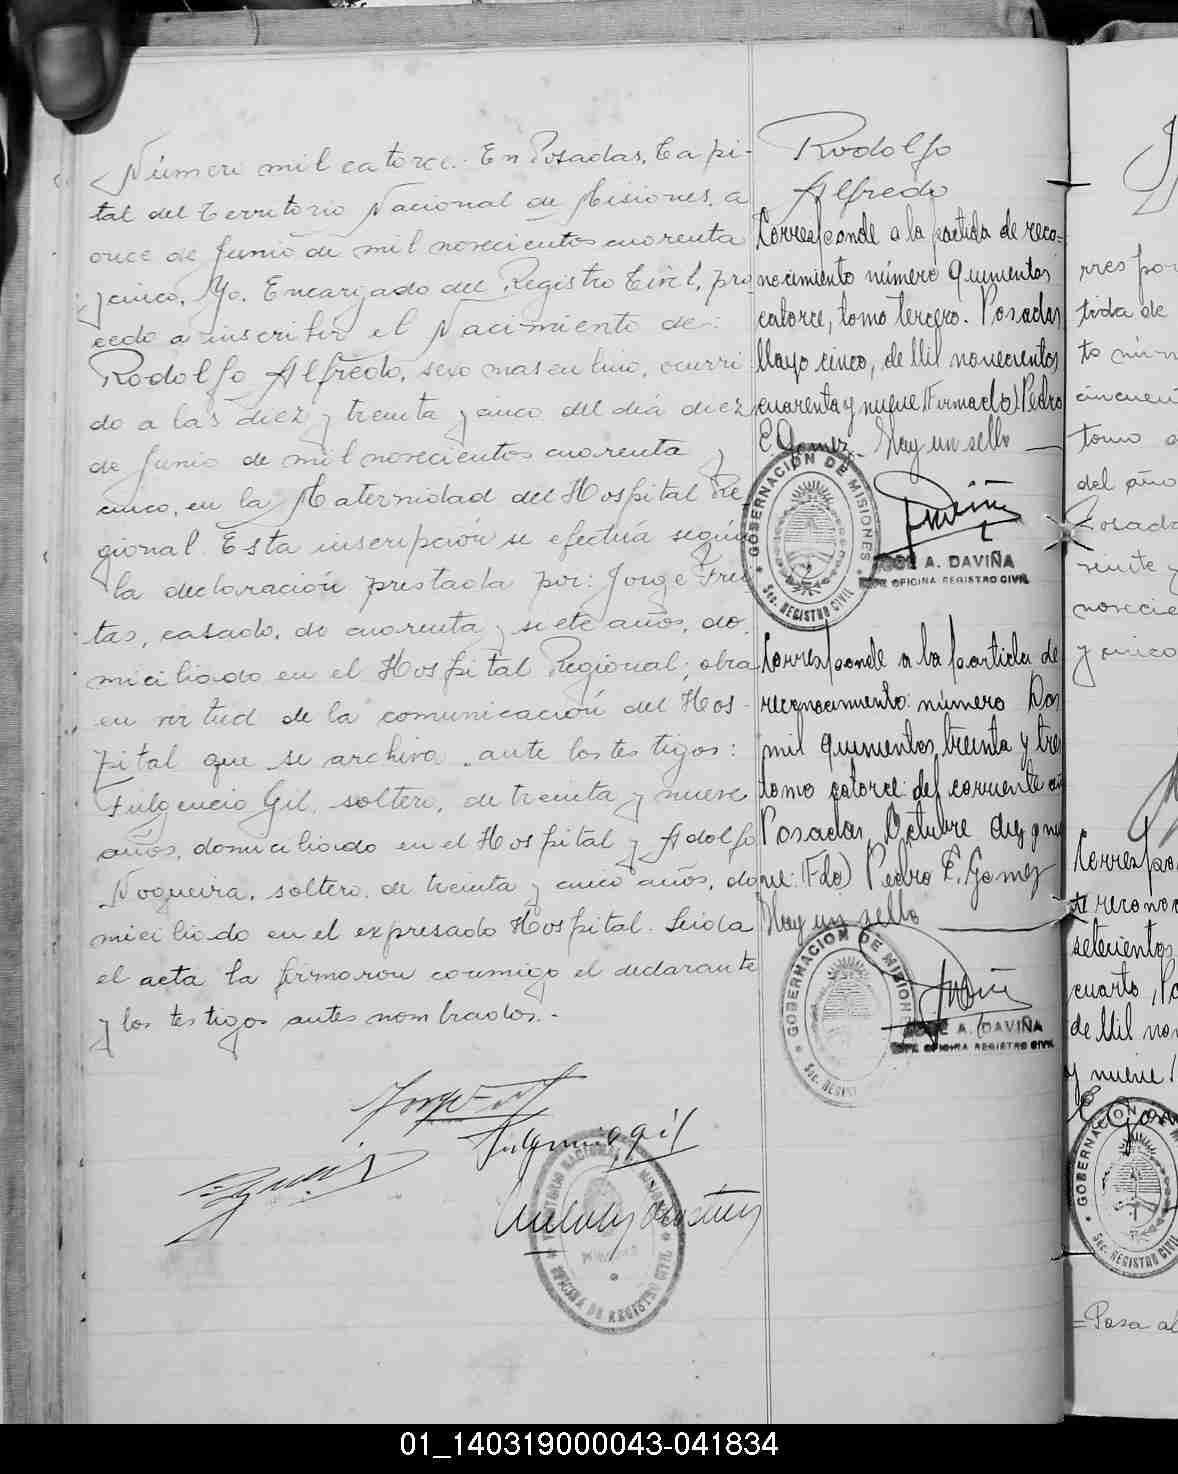 Número mil catorce. En Posadas, Capi-
tal del Territorio Nacional de Misiones, a
once de Junio de mil novecientos cuarenta
y cinco, Yo, Encargado del Registro Civil, pro
cedo a inscribir el Nacimiento de:
Rodolfo Alfredo, sexo masculino, ocurri
do a las diez y treinta y cinco del día diez
de Junio de mil novecientos cuarenta y
cinco, en la Maternidad del Hospital Re
gional. Esta inscripción se efectúa según
la declaración prestada por: Jorge Frei
tas, casado, de cuarenta y siete años, do
miciliado en el Hospital Regional; obra
en virtud de la comunicación del Hos-
pital que se archiva, ante los testigos:
Fulgencio Gil, soltero, de treinta y nueve
años, domiciliado en el Hospital y Adolfo
Nogueira, soltero, de treinta y cinco años, do
miciliado en el expresado Hospital. Leida
el acta la firmaron conmigo el declarante
y los testigos antes nombrados.-
Fulgencio Gil
OFICINA DE REGISTRO CIVIL
Rodolfo
Alfredo
Corresponde a la partida de reco=
nocimiento número Quinientos
catorce, tomo tercero. Posadas
Mayo cinco, de Mil novecientos
cuarenta y nueve. (Firmado). Pedro
E. Gomez. Hay un sello
GOBERNACION DE MISIONES
Sec. REGISTRO CIVIL
JOSE A. DAVIÑA
JEFE OFICINA REGISTRO CIVIL
Corresponde a la partida de
reconocimiento: número Dos
mil quinientos treinta y tres
tomo catorce: del corriente año
Posadas, Octubre diez y nue
ve: (Fdo) Pedro E. Gomez
Hay un sello
GOBERNACION DE MISIONES
Sec. REGISTRO CIVIL
JOSE A. DAVIÑA
JEFE OFICINA REGISTRO CIVIL
rres pon
tida de
to núm
cincuen
tomo
del año
Posada
veinte y
novecie
y cinco
Correspo
reconoc
setecientos
cuarto, Po
de Mil nov
y nueve
E. Gom
GOBERNACION DE M
Sec. REGISTRO CIVIL
=Pasa al
01_140319000043-041834